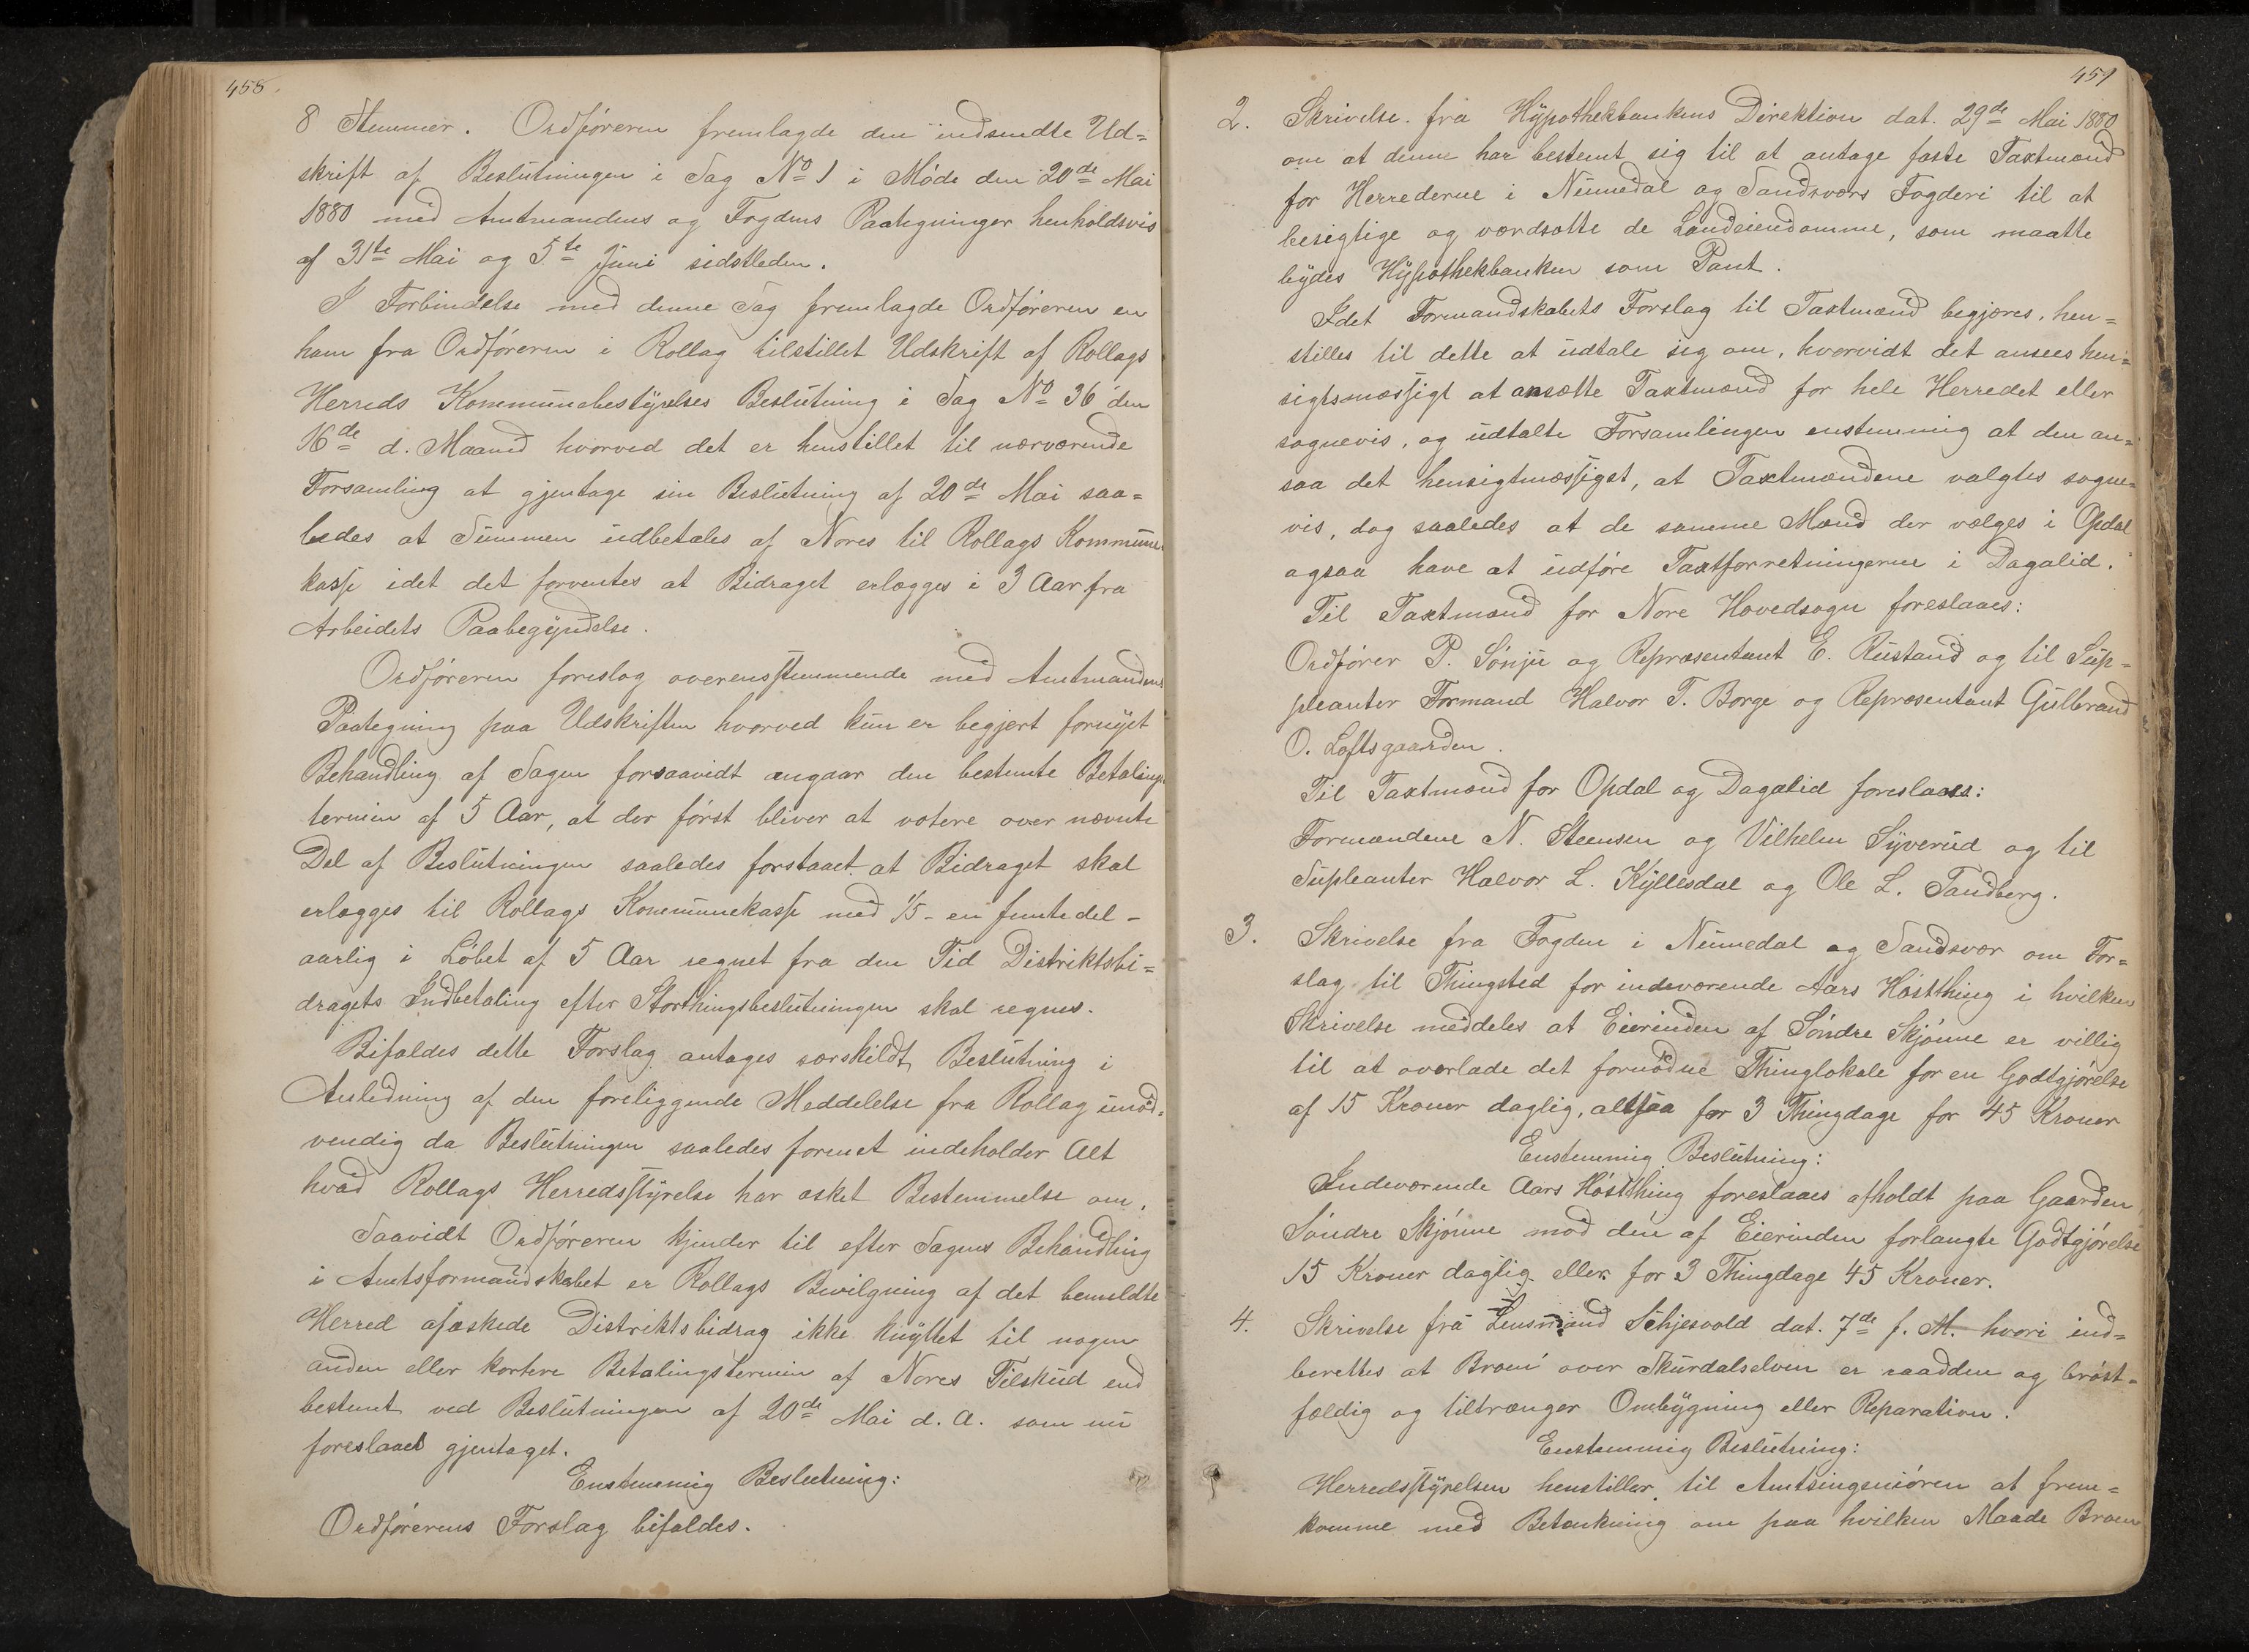 458.
8 Stemmer. Ordføreren fremlagde den indsendte Ud=
skrift af Beslutningen i Sag No 1 i Møde den 20de Mai
1880 med Amtmandens og Fogdens Paategninger henholdsvis
af 31te Mai og 5te Juni sidstleden.
I Forbindelse med denne Sag fremlagde Ordføreren en
ham fra Ordføreren i Rollag tilstillet Udskrift af Rollags
Herreds Kommunebestyrelses Beslutning i Sag No 36 den
16de d. Maaned hvorved det er henstillet til nærværende
Forsamling at gjentage sin Beslutning af 20de Mai saa=
ledes at Summen udbetales af Nores til Rollags Kommune
kasse idet det forventes at Bidraget erlægges i 3 Aar fra
Arbeidets Paabegyndelse.
Ordføreren foreslog overensstemmende med Amtmandens
Paategning paa Udskriften hvorved kun er begjert fornyet
Behandling af Sagen forsaavidt angaar den bestemte Betalings
termin af 5 Aar, at der først bliver at votere over nævnte
Del af Beslutningen saaledes forstaaet at Bidraget skal
erlægges til Rollags Kommunekasse med 1/5 - en femtedel -
aarlig i Løbet af 5 Aar regnet fra den Tid Distriktsbi=
dragets Indbetaling efter Storthingsbeslutningen skal regnes.
Bifaldes dette Forslag antages særskildt Beslutning i
Anledning af den foreliggende Meddelelse fra Rollag unød=
vendig da Beslutningen saaledes formet indeholder Alt
hvad Rollags Herredsstyrelse har æsket Bestemmelse om.
Saavidt Ordføreren kjender til efter Sagens Behandling
i Amtsformandskabet er Rollags Bevilgning af det bemeldte
Herred afæskede Distriktsbidrag ikke knyttet til nogen
anden eller kortere Betalingstermin af Nores Tilskud end
bestemt ved Beslutningen af 20de Mai d. A. som nu
foreslaaes gjentaget.
Enstemmig Beslutning:
Ordførerens Forslag bifaldes.
459
2. Skrivelse fra Hypothekbankens Direktion dat. 29de Mai 1880
om at denne har bestemt sig til at antage faste Taxtmænd
for Herrederne i Numedal og Sandsværs Fogderi til at
besigtige og værdsætte de Landeiendomme, som maatte
bydes Hypothekbanken som Pant.
Idet Formandskabets Forslag til Taxtmænd begjæres, hen=
stilles til dette at udtale sig om, hvorvidt det ansees hen=
sigtsmæssigt at ansætte Taxtmænd for hele Herredet eller
sognevis, og udtalte Forsamlingen enstemmig at den an=
saa det hensigtmæssigst, at Taxtmændene valgtes sogne=
vis, dog saaledes at de samme Mænd der vælges i Opdal
ogsaa have at udføre Taxtforretningerne i Dagalid.
Til Taxtmænd for Nore Hovedsogn foreslaaes:
Ordfører P. Sønju og Repræsentant E. Rustand og til Sup=
pleanter Formand Halvor T. Borge og Repræsentant Gulbrand
O. Loftsgaarden.
Til Taxtmænd for Opdal og Dagalid foreslaaes:
Formændene N. Steensen og Vilhelm Syverud og til
Supleanter Halvor L. Kyllesdal og Ole L. Tandberg.
3. Skrivelse fra Fogden i Numedal og Sandsvær om For=
slag til Thingsted for indeværende Aars Høstthing i hvilken
Skrivelse meddeles at Eierinden af Søndre Skjønne er villig
til at overlade det fornødne Thinglokale for en Godtgjørelse
af 15 Kroner daglig, altsaa for 3 Thingdage for 45 Kroner
Enstemmig Beslutning:
Indeværende Aars Høstthing foreslaaes afholdt paa Gaarden
Søndre Skjønne mod den af Eierinden forlangte Godtgjørelse
15 Kroner daglig eller for 3 Thingdage 45 Kroner.
4. Skrivelse fra Lensmand Schjesvold dat. 7de f. M. hvori ind=
berettes at Broen over Skurdalselven er raadden og brøst=
fældig og tiltrænger Ombygning eller Reparation.
Enstemmig Beslutning:
Herredsstyrelsen henstiller til Amtsingeniøren at frem=
komme med Betænkning om paa hvilken Maade Broen